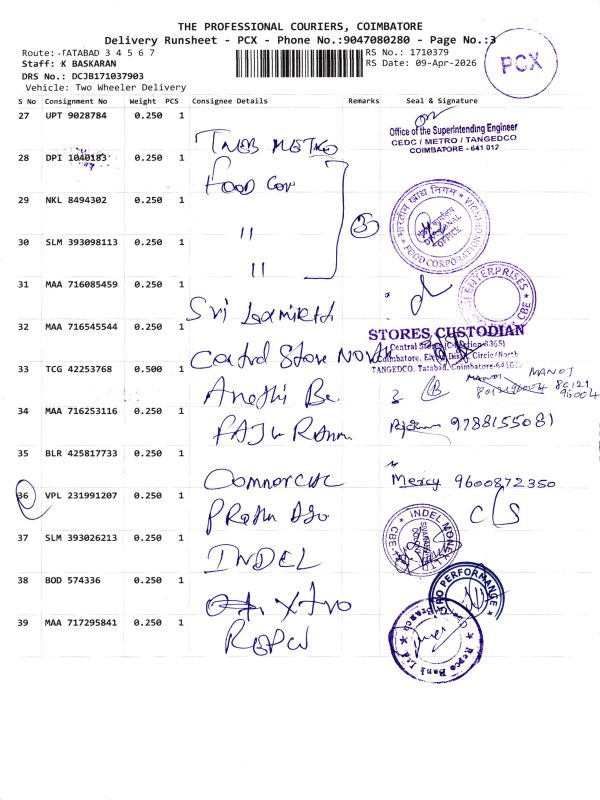 THE PROFESSIONAL COURIERS, COIMBATORE
Delivery Runsheet - PCX - Phone No.:9047080280 - Page No.:3
Route: TATABAD 3 4 5 6 7
RS No.: 1710379
Staff: K BASKARAN
RS Date: 09-Apr-2026
DRS No.: DCJB171037903
Vehicle: Two Wheeler Delivery
PCX
S No Consignment No Weight PCS Consignee Details Remarks Seal & Signature
27 UPT 9028784 0.250 1
TNEB METRO
Office of the Superintending Engineer
CEDC / METRO / TANGEDCO
COIMBATORE - 641 012
28 DPI 1040183 0.250 1
Food Cor
29 NKL 8494302 0.250 1
"
3
भारतीय खाद्य निगम
FOOD CORPORATION OF INDIA
DIVISIONAL OFFICE
30 SLM 393098113 0.250 1
"
31 MAA 716085459 0.250 1
Sri
ENTERPRISES
CBE
32 MAA 716545544 0.250 1
Central Store North
STORES CUSTODIAN
Circle/North
TANGEDCO, Tatabad, Coimbatore-641012
33 TCG 42253768 0.500 1
MANOJ
MANOJ
80121 96004
80121
96004
34 MAA 716253116 0.250 1
9788155081
35 BLR 425817733 0.250 1
Mercy 9600872350
36 VPL 231991207 0.250 1
C/S
37 SLM 393026213 0.250 1
INDEL
INDEL MONEY LTD
CBE
38 BOD 574336 0.250 1
Xtro
XTRO PERFORMANCE
39 MAA 717295841 0.250 1
REPCO
Repco Bank Ltd
Branch